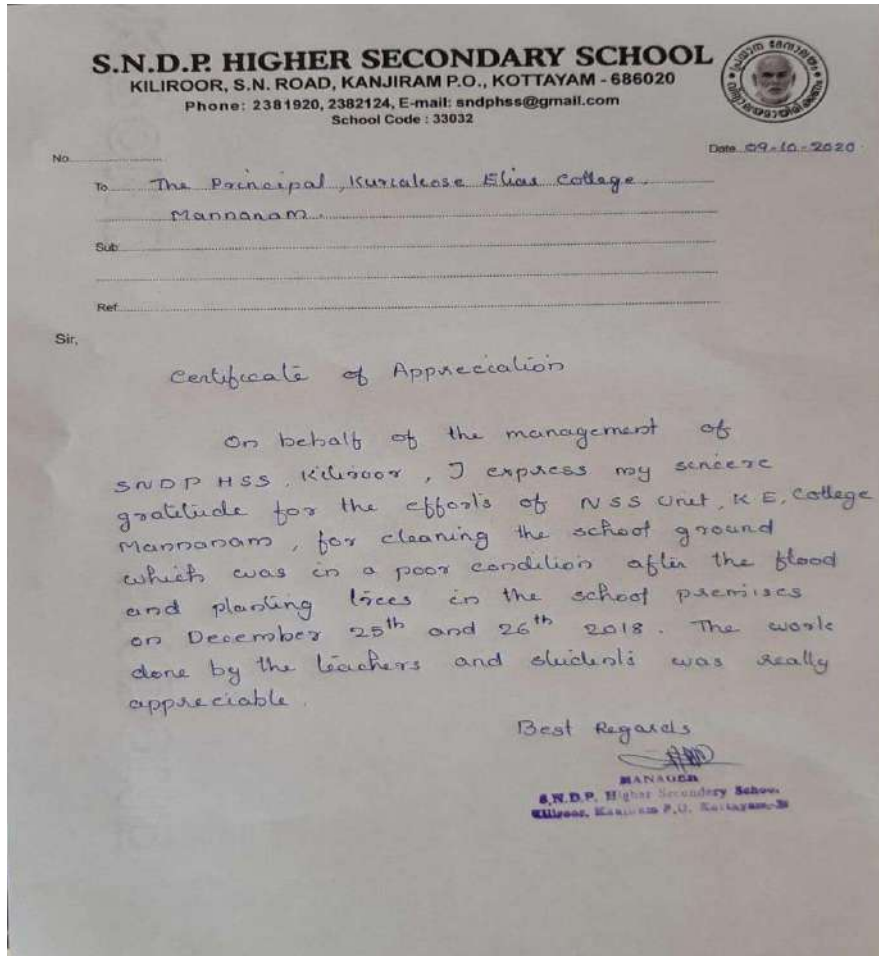 S.N.D.P. HIGHER SECONDARY SCHOOL
KILIROOR, S.N. ROAD, KANJIRAM P.O., KOTTAYAM - 686020
Phone: 2381920, 2382124, E-mail: sndphss@gmail.com
School Code : 33032
No.
Date 09-10-2020
To The Principal, Kuriakose Elias College,
Mannanam.
Sub
Ref
Sir,
Certificate of Appreciation
On behalf of the management of
SNDP HSS, Kiliroor, I express my sincere
gratitude for the efforts of NSS Unit, K.E. College
Mannanam, for cleaning the school ground
which was in a poor condition after the flood
and planting trees in the school premises
on December 25th and 26th 2018. The work
done by the teachers and students was really
appreciable.
Best Regards
MANAGER
S.N.D.P. Higher Secondary School
Kiliroor, Kanjiram P.O. Kottayam-